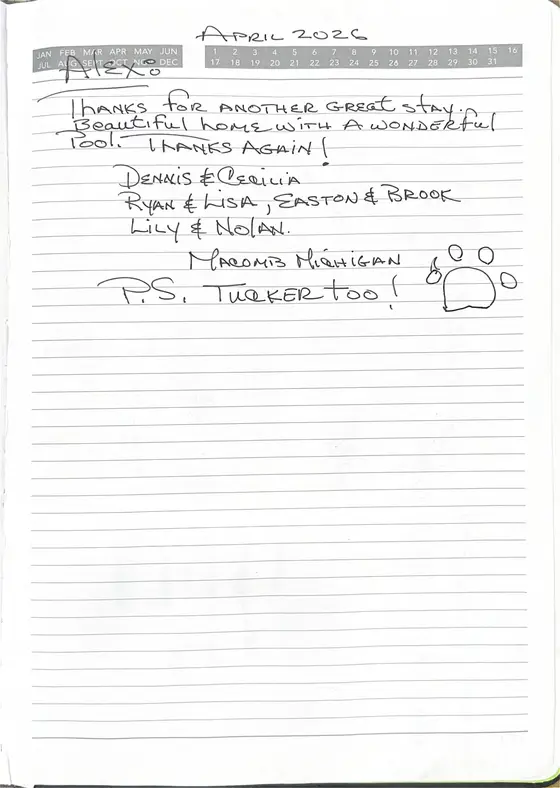 APRIL 2026
JAN FEB MAR APR MAY JUN 1 2 3 4 5 6 7 8 9 10 11 12 13 14 15 16
JUL AUG SEPT OCT NOV DEC 17 18 19 20 21 22 23 24 25 26 27 28 29 30 31
Alex:
THANKS for ANOTHER GREAT STAY.
Beautiful home with A wonderful
Pool. THANKS AGAIN!
DENNIS & CECILIA
RYAN & LISA, EASTON & BROOK
LILY & NOLAN.
MACOMB MICHIGAN
P.S. TUCKER TOO!